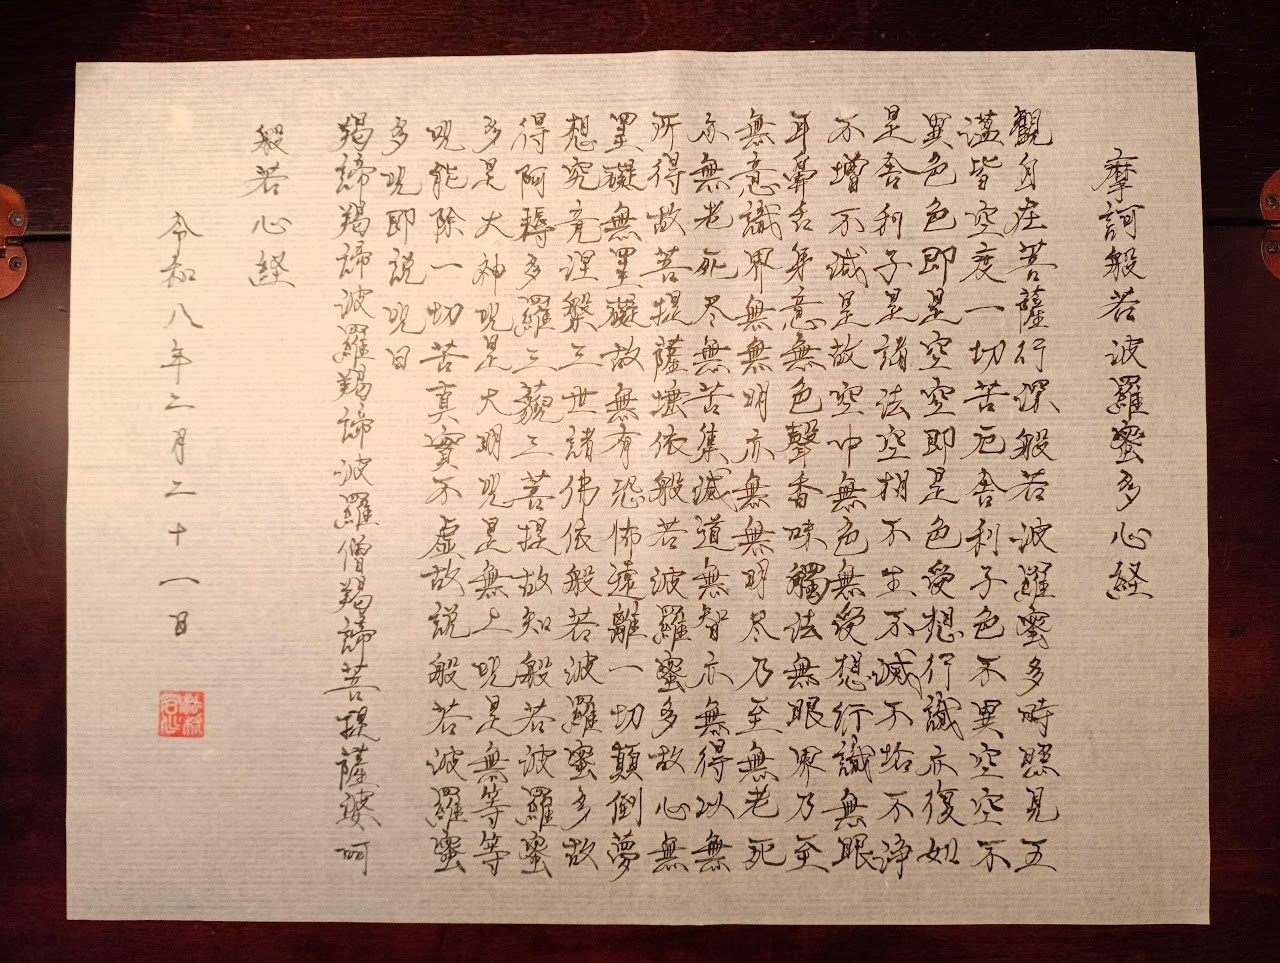 摩訶般若波羅蜜多心経
觀自在菩薩行深般若波羅蜜多時照見五
蘊皆空度一切苦厄舎利子色不異空空不
異色色即是空空即是色受想行識亦復如
是舎利子是諸法空相不生不滅不垢不浄
不増不減是故空中無色無受想行識無眼
耳鼻舌身意無色聲香味觸法無眼界乃至
無意識界無無明亦無無明尽乃至無老死
亦無老死尽無苦集滅道無智亦無得以無
所得故菩提薩埵依般若波羅蜜多故心無
罣礙無罣礙故無有恐怖遠離一切顛倒夢
想究竟涅槃三世諸佛依般若波羅蜜多故
得阿耨多羅三藐三菩提故知般若波羅蜜
多是大神呪是大明呪是無上呪是無等等
呪能除一切苦真實不虚故説般若波羅蜜
多呪即説呪曰
羯諦羯諦波羅羯諦波羅僧羯諦菩提薩婆呵
般若心経
令和八年二月二十一日